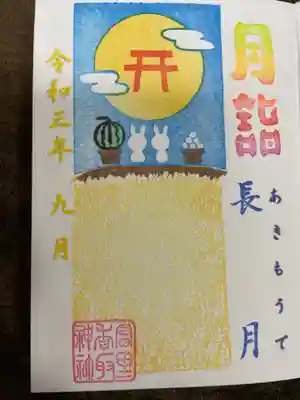 月詣
あきもうで
長月
令和三年 九月
香取
神社